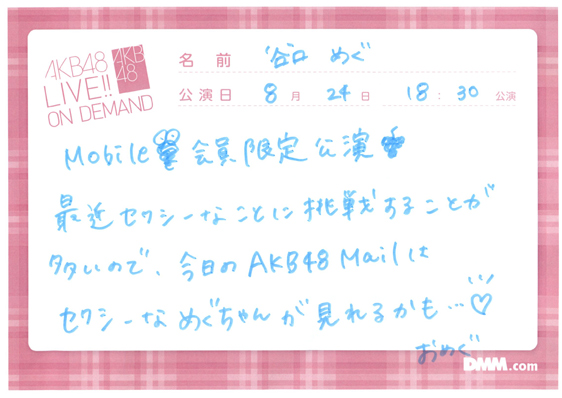 AKB48
LIVE!!
ON DEMAND
AKB
48
名前 谷口 めぐ
公演日 8月 24日 18:30 公演
Mobile 会員限定公演
最近セクシーなことに挑戦することが
多いので、今日のAKB48 Mailは
セクシーなめぐちゃんが見れるかも…♡
おめぐ
DMM.com